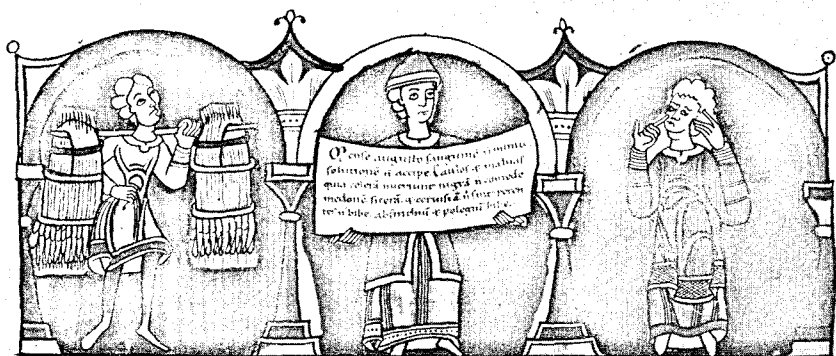 Mense augusto sanguinē ñ minu
solutionē ñ accipe Caulos & maluas
quia colerā nutriunt nigrā ñ comede
medonē sicerā & ceruisiā ñ
ñ bibe absinthiū & polegiū bibe.